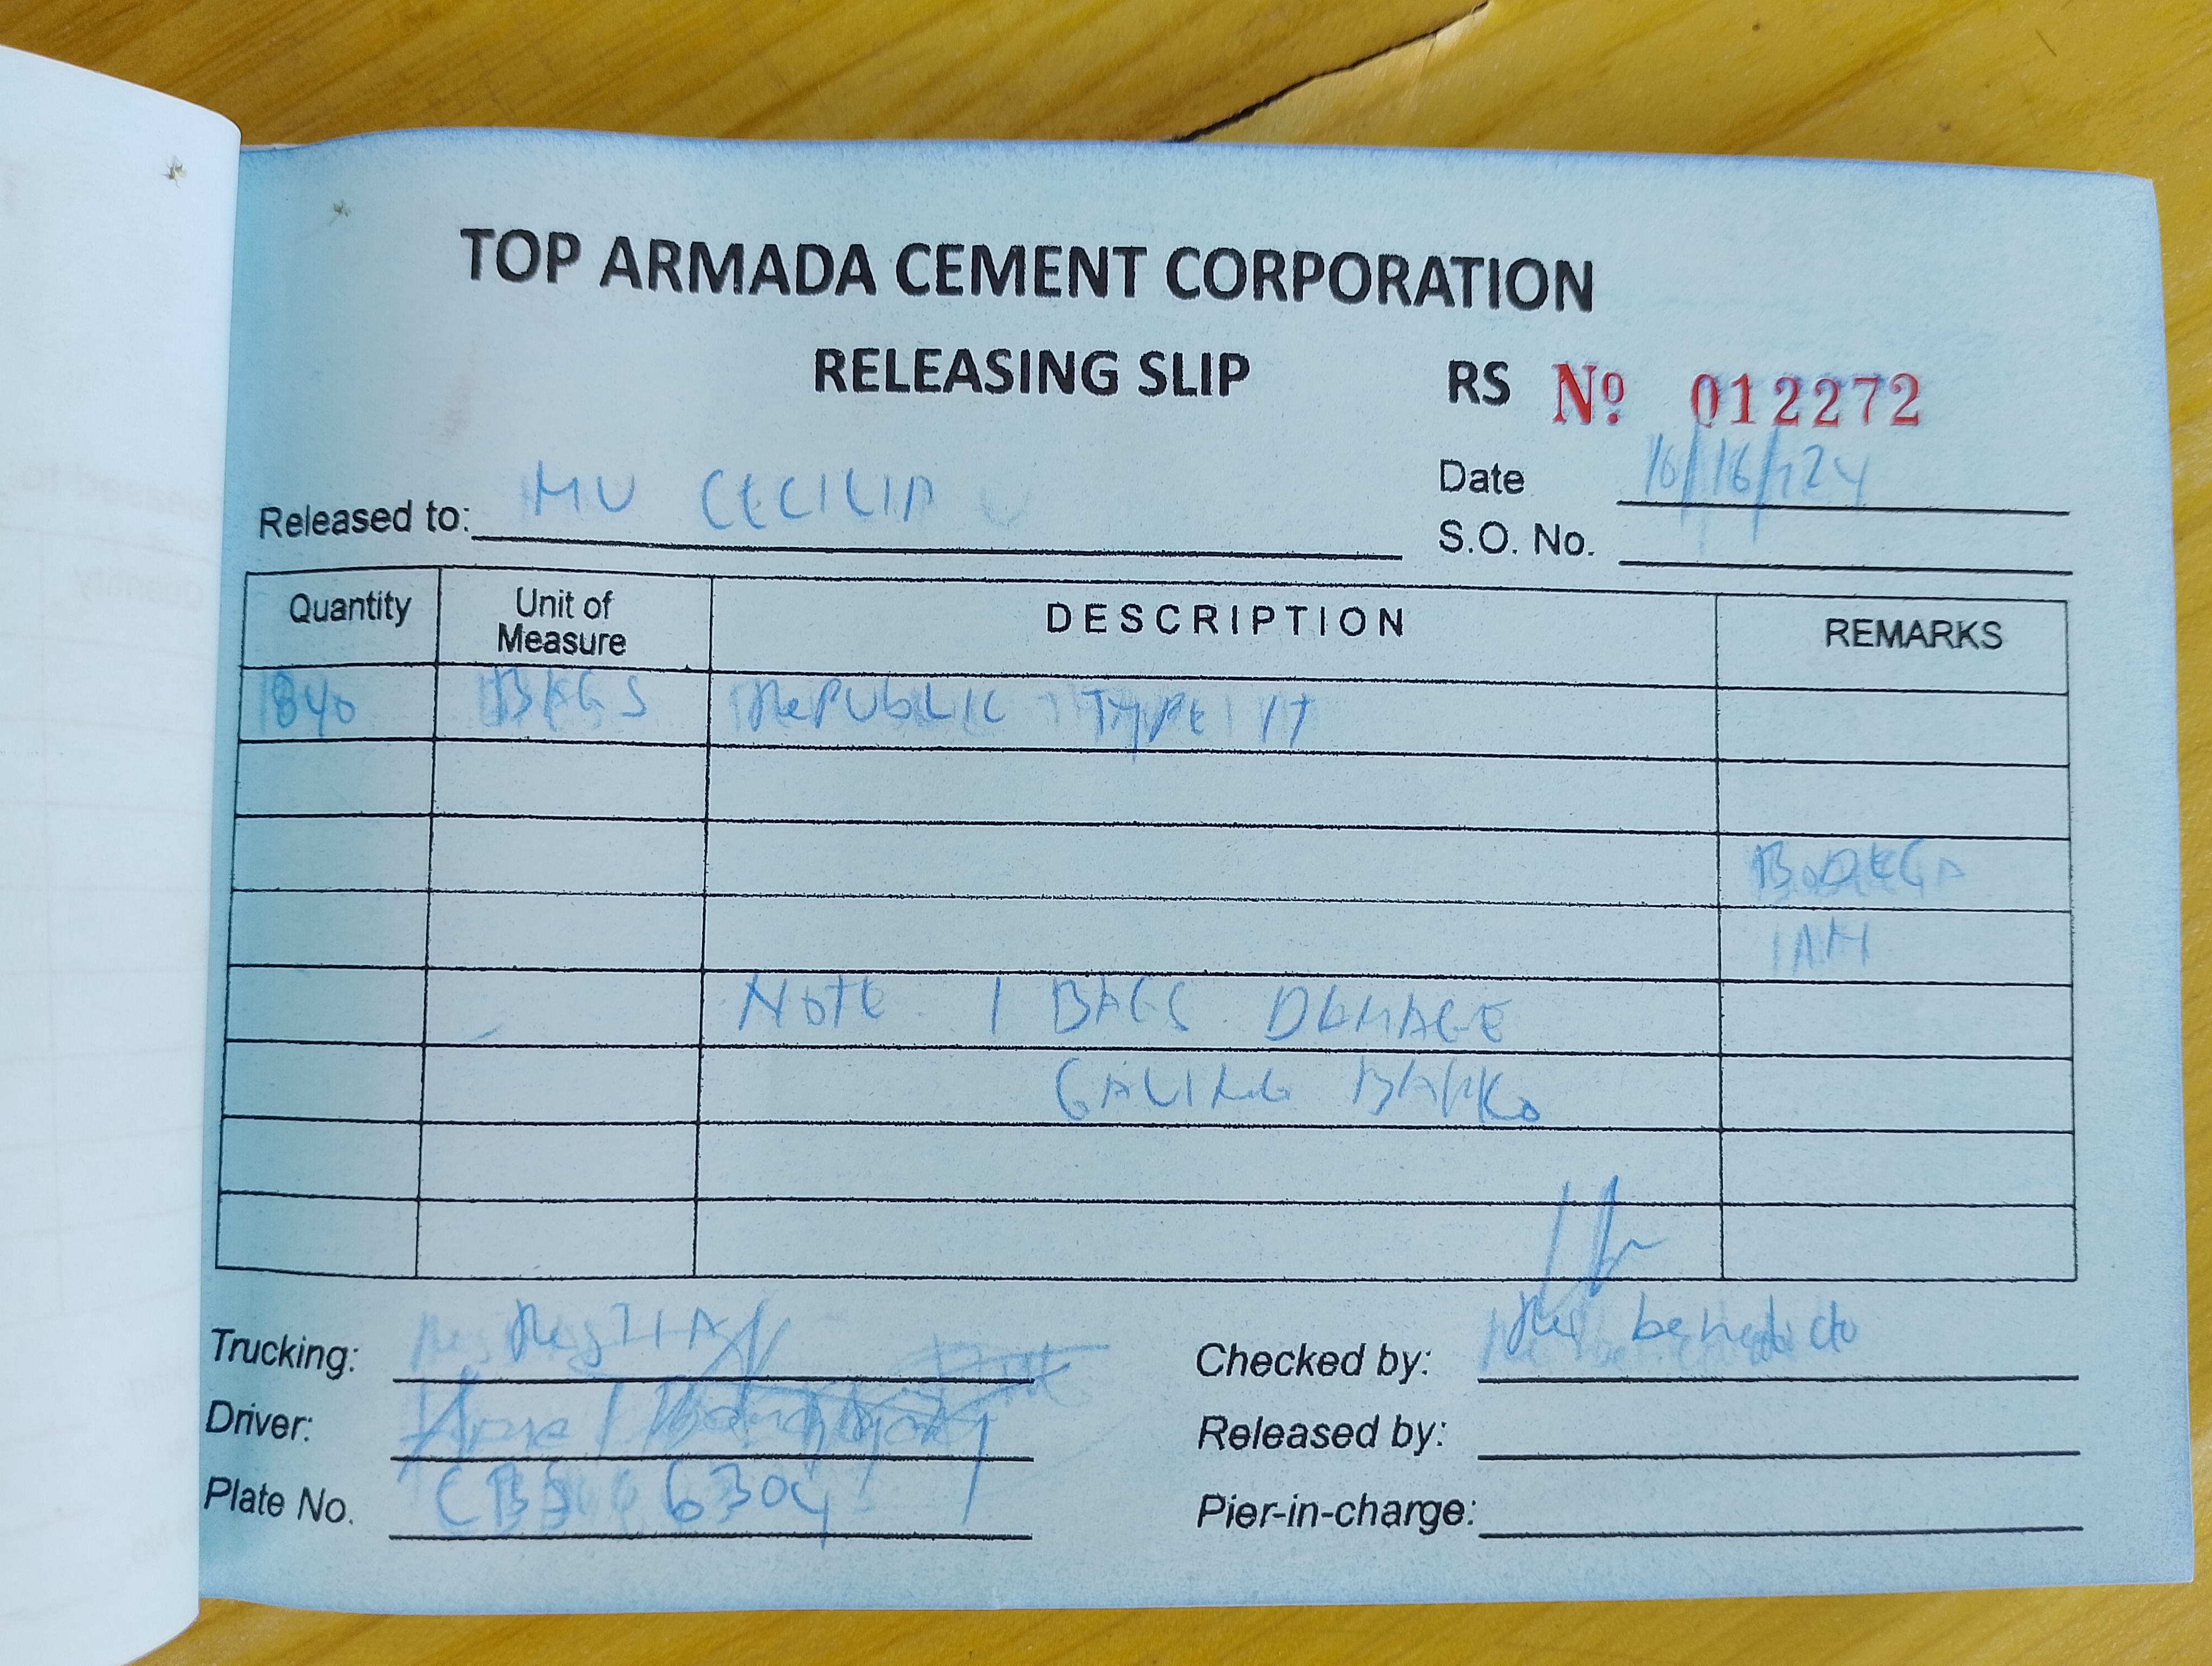 TOP ARMADA CEMENT CORPORATION
RELEASING SLIP
RS Nº 012272
Date 10/16/24
Released to: MV CECILIA
S.O. No.
Quantity Unit of Measure DESCRIPTION REMARKS
840 BAGS RePUbLIC TYPE 1T
BODEGA
1AM
NOTE 1 BAGS DAMAGE
GALING BARKO
Trucking:
Checked by: benedicto
Driver:
Released by:
Plate No. CBS 6304
Pier-in-charge: